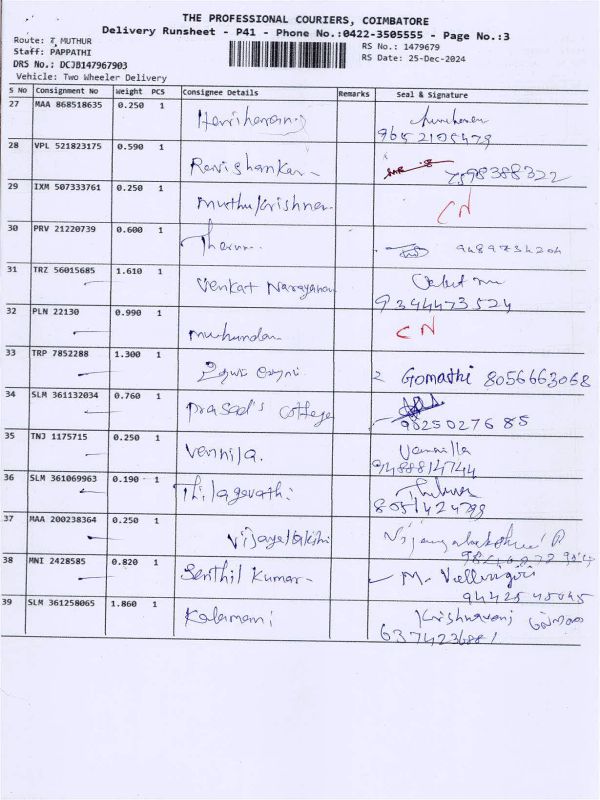 THE PROFESSIONAL COURIERS, COIMBATORE
Delivery Runsheet - P41 - Phone No.:0422-3505555 - Page No.:3
Route: T, MUTHUR
RS No.: 1479679
Staff: PAPPATHI
RS Date: 25-Dec-2024
DRS No.: DCJB147967903
Vehicle: Two Wheeler Delivery
S No Consignment No Weight PCS Consignee Details Remarks Seal & Signature
27 MAA 868518635 0.250 1 Hariharan
28 VPL 521823175 0.590 1 Ravishankar 7598388322
29 IXM 507333761 0.250 1 muthukrishnan CN
30 PRV 21220739 0.600 1 Tharun 9489734204
31 TRZ 56015685 1.610 1 Venkat Narayanan
9344473524
32 PLN 22130 0.990 1 mukundan CN
33 TRP 7852288 1.300 1 Gomathi 8056663068
34 SLM 361132034 0.760 1 prasad's cottage
9025027685
35 TNJ 1175715 0.250 1 Vennila. Vennilla
9488814744
36 SLM 361069963 0.190 1 Thilagavathi
8051424799
37 MAA 200238364 0.250 1 Vijayalakshmi
38 MNI 2428585 0.820 1 Senthil Kumar M. Vellingiri
9442545045
39 SLM 361258065 1.860 1 Kalamani Krishnaveni
6374236881